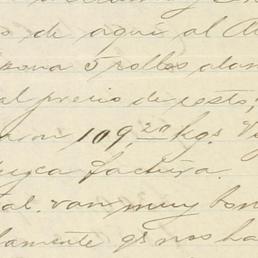 o de aqui al
5 rollos alam
al precio de costo,
109,20 kgs.
factura.
tal. van muy bon
lamente qe nos ha